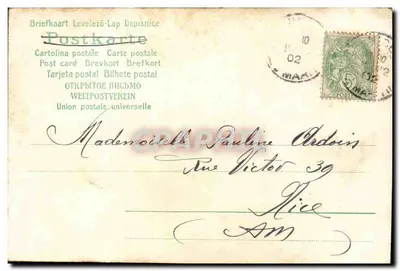 Briefkaart Levelező-Lap Dopisnice
Postkarte
Cartolina postale Carte postale
Post card Brevkort Brefkort
Tarjeta postal Bilhete postal
ОТКРЫТОЕ ПИСЬМО
WELTPOSTVEREIN
Union postale universelle
10
02
MAR.
02
MAR.
Mademoiselle Pauline Ardoin
Rue Victor 39
Nice
AM